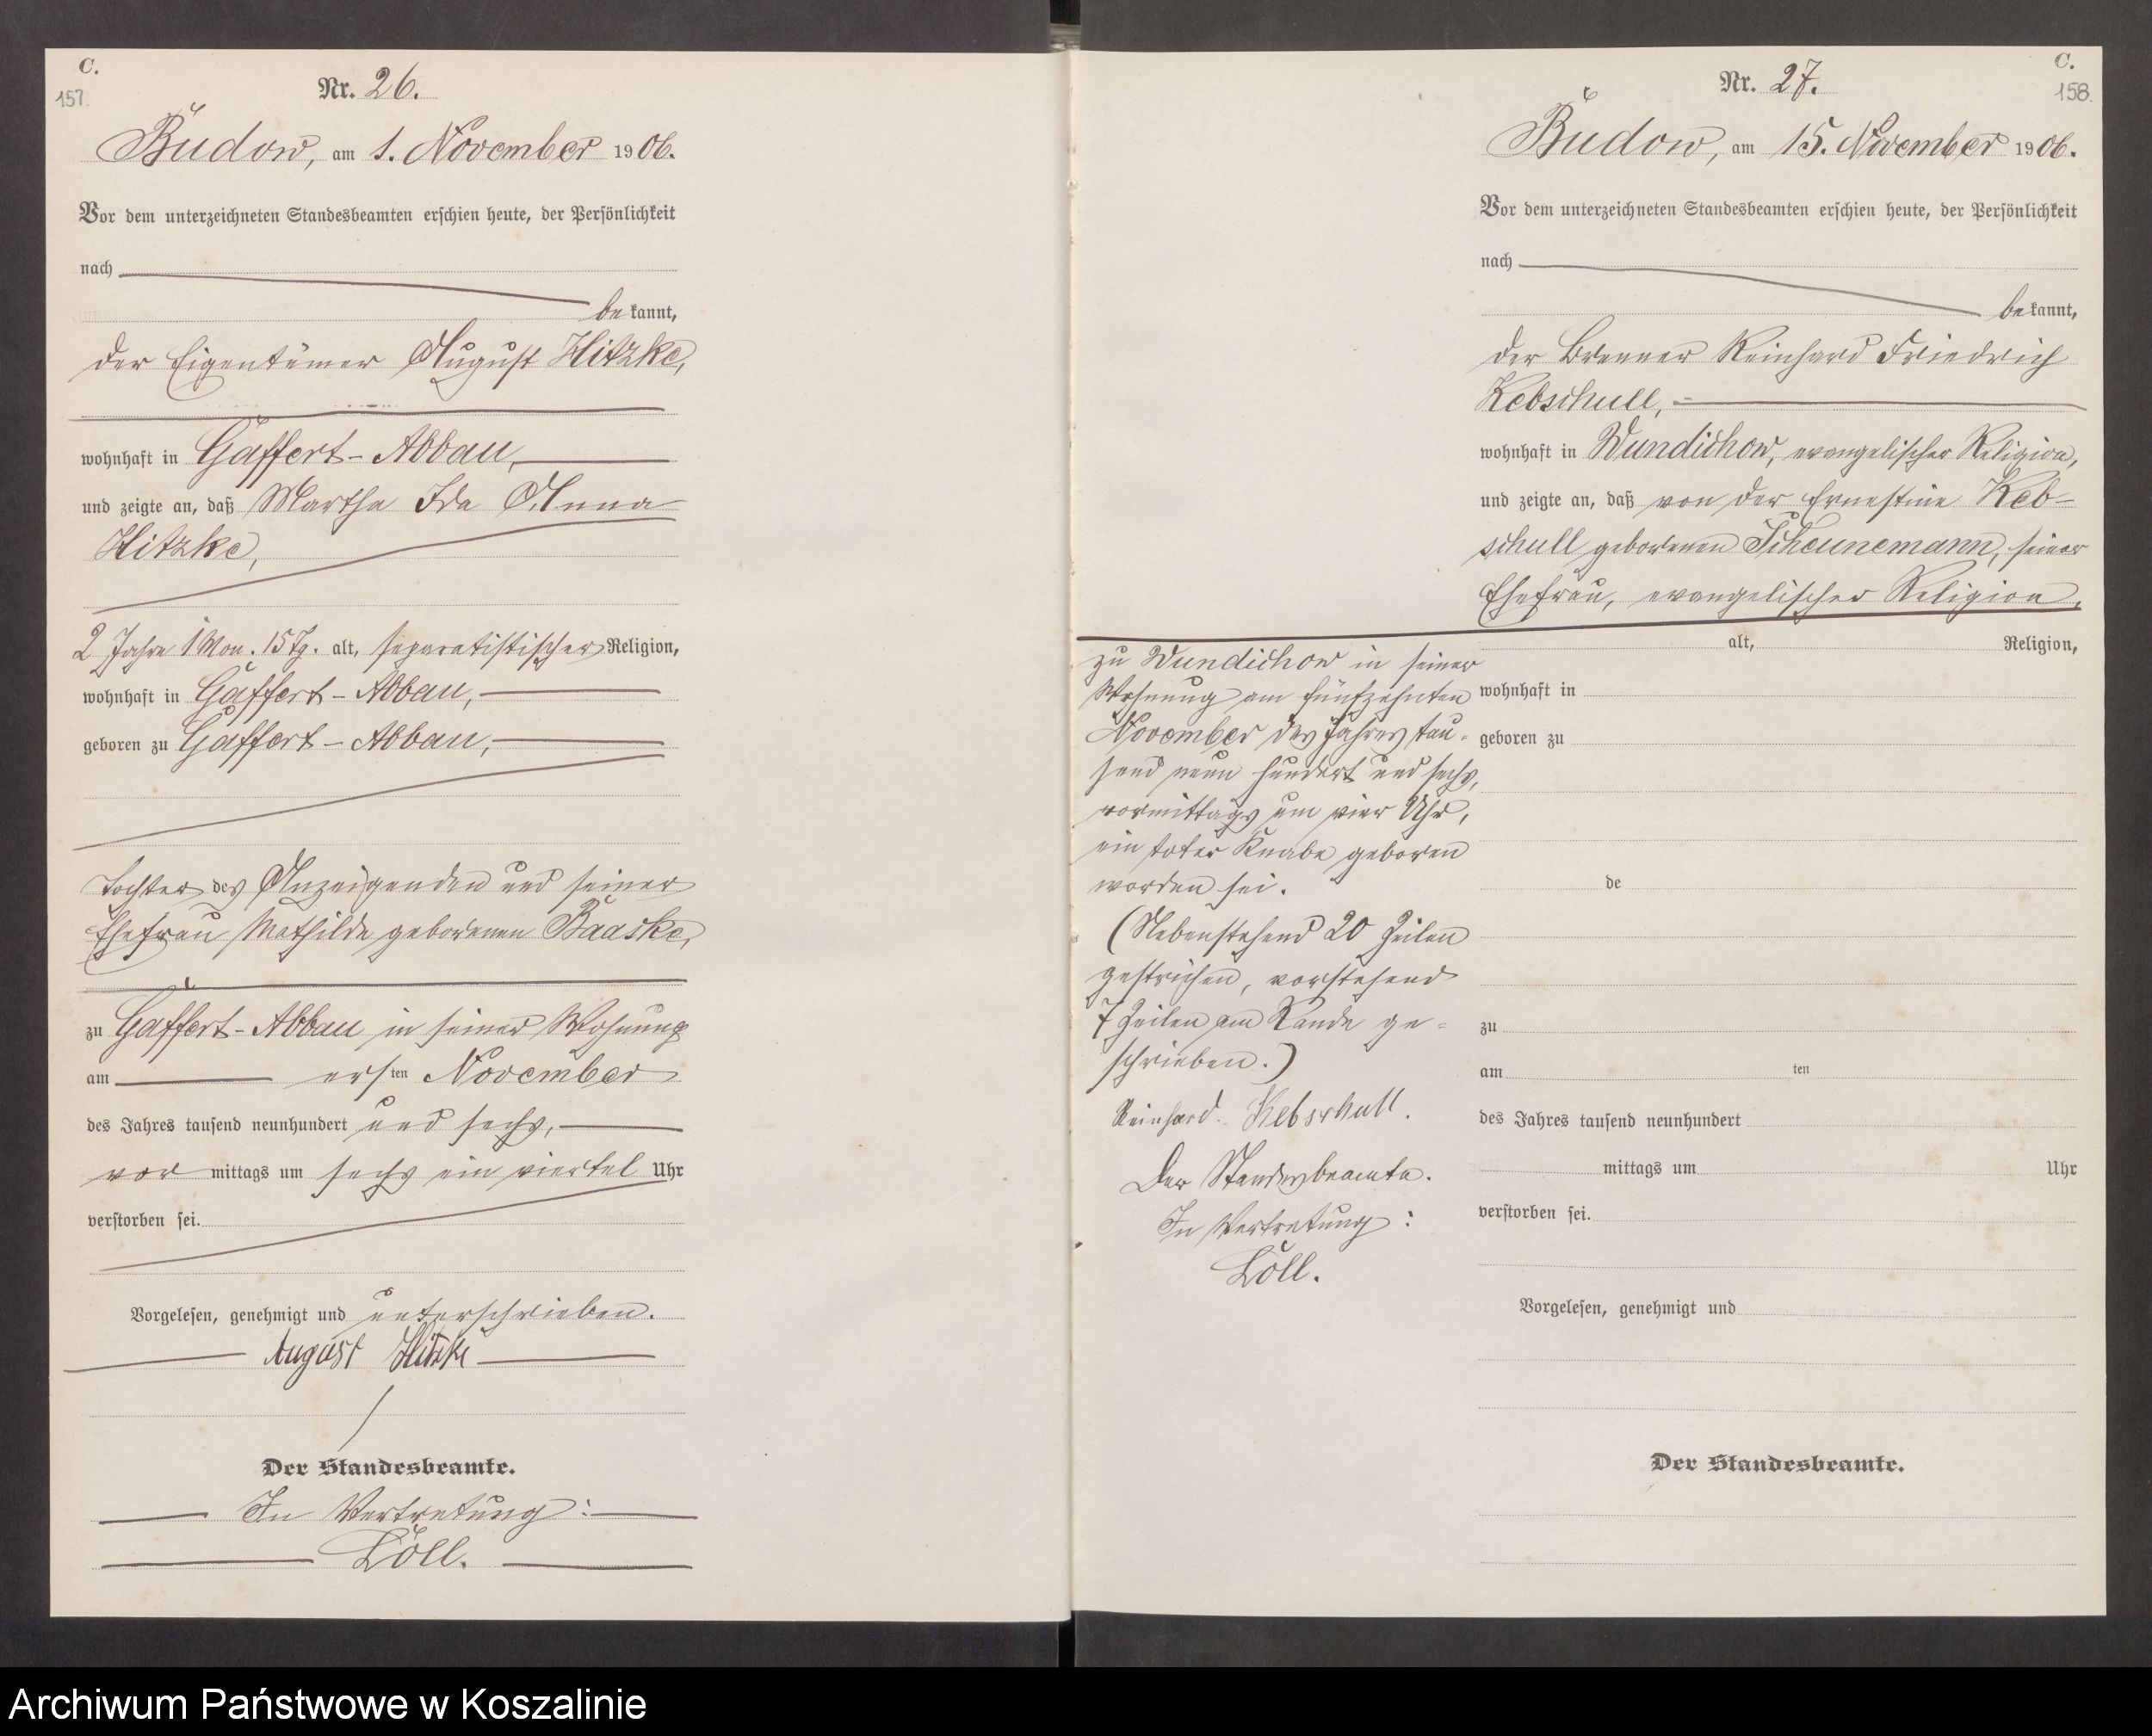 C.
157.
Nr. 26.
Budow, am 1. November 1906.
Vor dem unterzeichneten Standesbeamten erschien heute, der Persönlichkeit
nach
bekannt,
der Eigentümer August Hitzke,
wohnhaft in Gaffert-Abbau,
und zeigte an, daß Martha Ida Anna
Hitzke,
2 Jahre 1 Mon. 15 Tg. alt, separatistischer Religion,
wohnhaft in Gaffert-Abbau,
geboren zu Gaffert-Abbau,
Tochter des Anzeigenden und seiner
Ehefrau Mathilde geborenen Baaske,
zu Gaffert-Abbau in seiner Wohnung
am ersten November
des Jahres tausend neunhundert und sechs,
vor mittags um sechs ein viertel Uhr
verstorben sei.
Vorgelesen, genehmigt und unterschrieben.
August Hitzke
Der Standesbeamte.
In Vertretung:
Löll.
C.
158.
Nr. 27.
Budow, am 15. November 1906.
Vor dem unterzeichneten Standesbeamten erschien heute, der Persönlichkeit
nach
bekannt,
der Brenner Reinhard Friedrich
Kebschull,
wohnhaft in Wundichow, evangelischer Religion,
und zeigte an, daß von der Ernestine Keb-
schull geborenen Scheunemann, seiner
Ehefrau, evangelischer Religion,
zu Wundichow in seiner
Wohnung am fünfzehnten
November des Jahres tau-
send neun hundert und sechs,
vormittags um vier Uhr,
ein toter Knabe geboren
worden sei.
(Nebenstehend 20 Zeilen
gestrichen, vorstehend
7 Zeilen am Rande ge-
schrieben.)
Reinhard Kebschull.
Der Standesbeamte.
In Vertretung:
Löll.
alt, Religion,
wohnhaft in
geboren zu
de
zu
am ten
des Jahres tausend neunhundert
mittags um Uhr
verstorben sei.
Vorgelesen, genehmigt und
Der Standesbeamte.
Archiwum Państwowe w Koszalinie